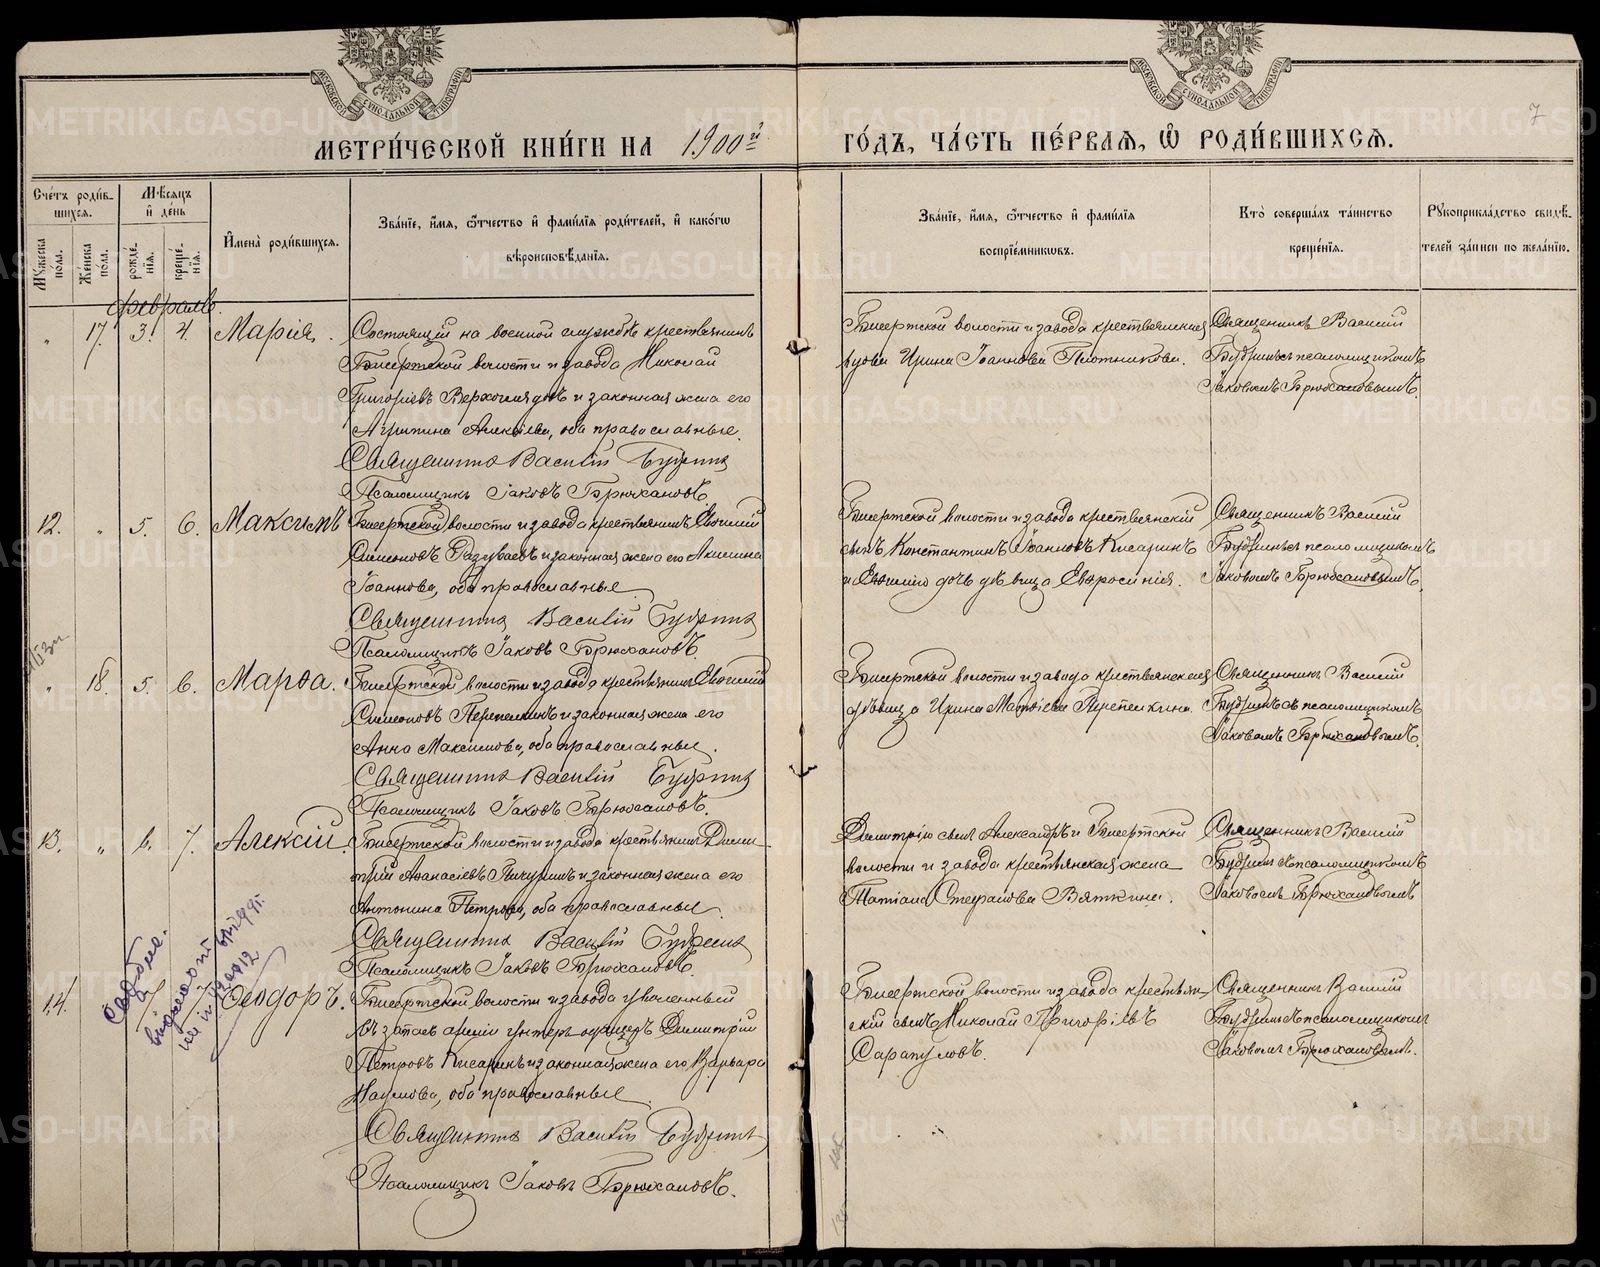 МЕТРИ́ЧЕСКОЙ КНИ́ГИ НА 1900й
ГО́ДЪ, ЧА́СТЬ ПЕ́РВАѦ, Ѡ҆ РОДИ́ВШИХСѦ.
7
Сче́тъ роди́в-
шихсѧ.
Мѣ́сѧцъ
и҆ де́нь
И҆мена̀ роди́вшихсѧ.
Зва́нїе, и҆́мѧ, ѻ҆́тчество и҆ фами́лїѧ роди́телей, и҆ како́гѡ
вѣроисповѣ́данїѧ.
Зва́нїе, и҆́мѧ, ѻ҆́тчество и҆ фами́лїѧ
воспрїе́мникѡвъ.
Кто̀ соверша́лъ та́инство
креще́нїѧ.
Рꙋкоприкла́дство свидѣ́-
телей за́писи по жела́нїю.
Мꙋ́жеска
по́ла.
Же́нска
по́ла.
рожде́-
нїѧ.
креще́-
нїѧ.
Февраль.
" 17. 3. 4. Марія.
Состоящій на военной службѣ крестьянинъ
Бисертской волости и завода Николай
Григоріевъ Верхоглядовъ и законная жена его
Агрипина Алексѣева, оба православные.
Священникъ Василій Будринъ
Псаломщикъ Іаковъ Брюхановъ.
Бисертской волости и завода крестьянская
вдова Ирина Іоаннова Плотникова.
Священникъ Василій
Будринъ съ псаломщикомъ
Іаковомъ Брюхановымъ.
12. " 5. 6. Максимъ
Бисертской волости и завода крестьянинъ Евѳимій
Симеоновъ Раздуваевъ и законная жена его Акилина
Іоаннова, оба православные.
Священникъ Василій Будринъ
Псаломщикъ Іаковъ Брюхановъ.
Бисертской волости и завода крестьянскій
сынъ Константинъ Іоанновъ Кисаринъ
и Евѳимію дочь дѣвица Евфросинія.
Священникъ Василій
Будринъ съ псаломщикомъ
Іаковомъ Брюхановымъ.
" 18. 5. 6. Марѳа.
Бисертской волости и завода крестьянинъ Евѳимій
Симеоновъ Перепелкинъ и законная жена его
Анна Максимова, оба православные.
Священникъ Василій Будринъ
Псаломщикъ Іаковъ Брюхановъ.
Бисертской волости и завода крестьянская
дѣвица Ирина Матѳіева Перепелкина.
Священникъ Василій
Будринъ съ псаломщикомъ
Іаковомъ Брюхановымъ.
13. " 6. 7. Алексій.
Бисертской волости и завода крестьянинъ Дими-
трій Аѳанасіевъ Пикулинъ и законная жена его
Антонина Петрова, оба православные.
Священникъ Василій Будринъ
Псаломщикъ Іаковъ Брюхановъ.
Димитрію сынъ Александръ и Бисертской
волости и завода крестьянская жена
Татіана Стефанова Вяткина.
Священникъ Василій
Будринъ съ псаломщикомъ
Іаковомъ Брюхановымъ
14. Ѳеодоръ.
Бисертской волости и завода уволенный
въ запасъ арміи унтеръ-офицеръ Димитрій
Петровъ Кисаринъ и законная жена его Варвара
Наумова, оба православные.
Священникъ Василій Будринъ
Псаломщикъ Іаковъ Брюхановъ.
Бисертской волости и завода крестьян-
скій сынъ Николай Григоріевъ
Сарапуловъ.
Священникъ Василій
Будринъ съ псаломщикомъ
Іаковомъ Брюхановымъ.
METRIKI.GASO-URAL.RU